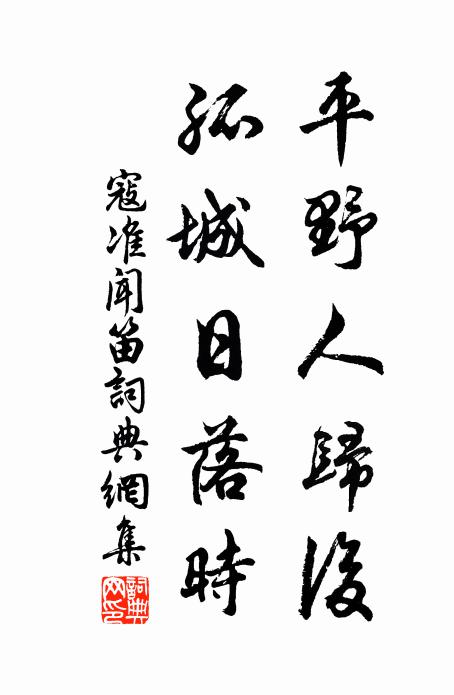 平野人歸後
孤城日落時
寇准聞笛詞典網集
詞典网印